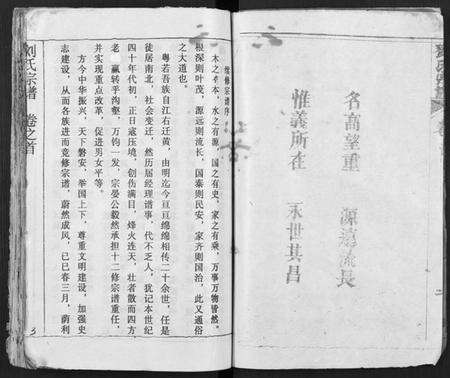 名高望重 源遠流長
惟義所在 永世其昌
二
续修宗谱序
木之有本，水之有源，国之有史，家之有乘，万事万物皆然。
根深则叶茂，源远则流长，国泰则民安，家齐则国治，此又通俗
之大道也。
粤若吾族自江右迁黄，由明迄今亘亘绵绵相传二十余世，任是
徒居南北，社会变迁，然历届经理谱事，代不乏人，犹记本世纪
四十年代初，正日寇压境，创伤满目，烽火连天，壮者散而四方
老 羸转乎沟壑，万钧一发，宗晏公毅然承担十二修宗谱重任，
并实现重点改革，促进男女平等。
方今中华振兴，天下磐安，举国上下，尊重文明建设，加强史
志建设，从而各族进而竞修宗谱，蔚然成风，己巳春三月，荫利
刘氏宗谱 卷之首
3